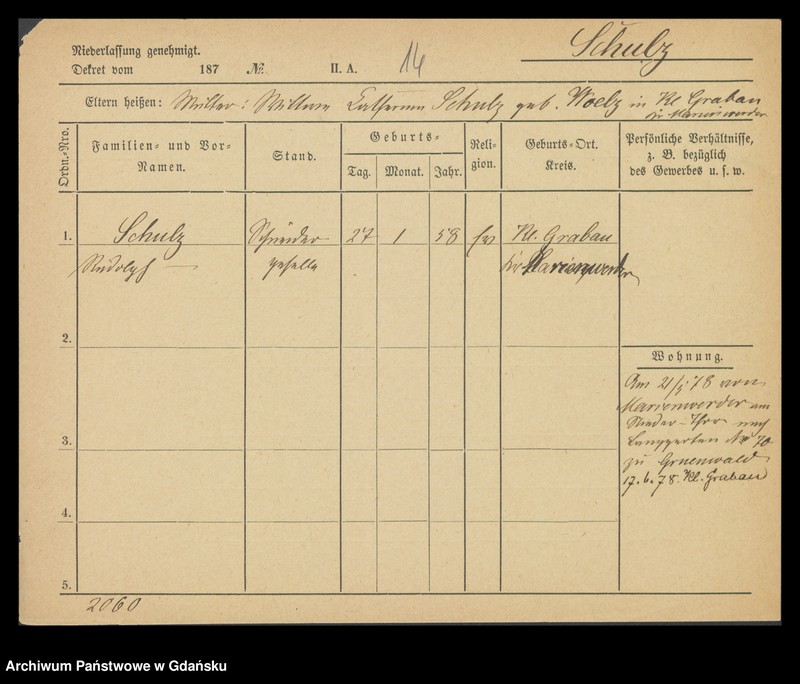 Schulz
Niederlassung genehmigt.
Dekret vom 187 №. II. A. 14
Eltern heißen: Mutter: Wittwe Catharina Schulz geb. Woelz in Kl Grabau
Kr Marienwerder
Ordn.-Nro.
Familien- und Vor-
Namen.
Stand.
Geburts-
Tag.
Monat.
Jahr.
Reli-
gion.
Geburts-Ort.
Kreis.
Persönliche Verhältnisse,
z. B. bezüglich
des Gewerbes u. s. w.
1. Schulz Schneider 27 1 58 ev Kl. Grabau
Rudolph geselle Kr Marienwerder
2.
Wohnung.
Am 21/5 78 von
Marienwerder am
Nieder-Thor nach
3. Langgarten No 70
zu Gruenwald
17. 6. 78. Kl. Grabau
4.
5.
2060
Archiwum Państwowe w Gdańsku